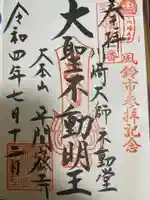 奉拝
川崎大師 不動堂
大聖不動明王
大本山 平間教寺
令和四年七月十二日
風鈴市参拝記念